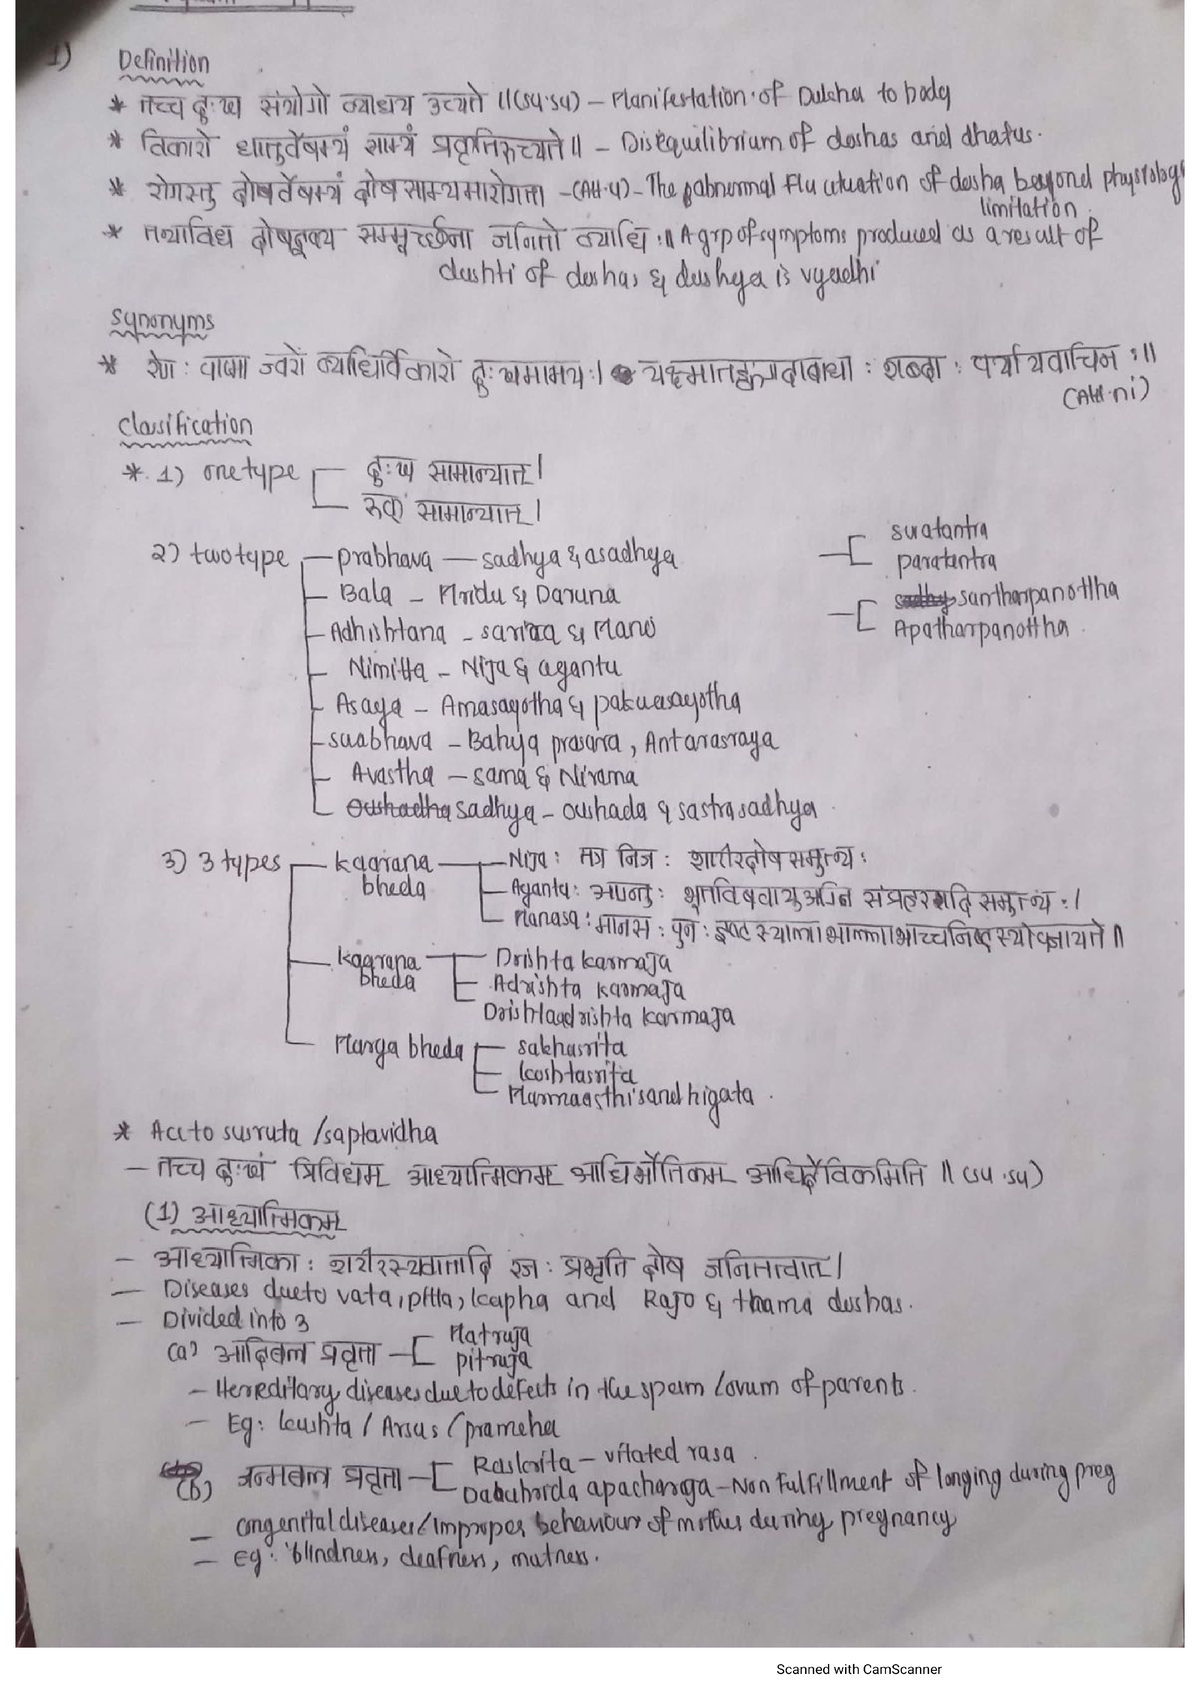 1) Definition
* तच्च दुःख संयोगो व्याधय उच्यते ॥(su.su) - Manifestation of Dukha to body
* विकारो धातुवैषम्यं साम्यं प्रकृतिरुच्यते॥ - Disequilibrium of doshas and dhatus.
* रोगस्तु दोषवैषम्यं दोषसाम्यमारोगता -(AH.u) - The abnormal fluctuation of dosha beyond physiolog
limitation
* तथाविध दोषदूष्य सम्मूर्च्छना जनितो व्याधि:॥ A grp of symptoms produced as a result of
dushti of doshas & dushya is vyadhi
Synonyms
* रोग: पाप्मा ज्वरो व्याधिर्विकारो दुःखमामय:। यक्ष्मातङ्कगदाबाधा: शब्दा: पर्यायवाचिन:॥
(AH.ni)
Classification
* 1) one type दुःख सामान्यात्।
रुक् सामान्यात्।
2) two type - prabhava - sadhya & asadhya
Bala - Mridu & Daruna
Adhishtana - sarira & Mano
Nimitta - Nija & agantu
Asaya - Amasayotha & pakwasayotha
swabhava - Bahya prasara, Antarasraya
Avastha - sama & Nirama
Oushadha sadhya - oushada & sastrasadhya
swatantra
paratantra
santharpanottha
Apatharpanottha
3) 3 types - kaarana bheda - Nija: तत्र निज: शारीरदोषसमुत्थ:
Agantu: आगन्तु: भूतविषवायुअग्नि संप्रहारादि समुत्थ:।
Manasa: मानस: पुन: इष्टस्यालाभाल्लाभाच्चानिष्टस्योपजायते॥
kaarana bheda - Drishta karmaja
Adrishta karmaja
Drishtaadrishta karmaja
Marga bheda - sakhasrita
koshtasrita
Marmaasthisandhigata.
* Acc to susruta /saptavidha
- तच्च दुःखं त्रिविधम् आध्यात्मिकम् आधिभौतिकम् आधिदैविकमिति ॥ (su.su)
(1) आध्यात्मिकम्
- आध्यात्मिका: शरीरस्थवातादि रज: प्रभृति दोष जनितत्वात्।
- Diseases due to vata, pitta, kapha and Rajo & thama doshas.
- Divided into 3
(a) आदिबल प्रवृत्ता - Matruja
pitruja
- Hereditary diseases due to defects in the sperm /ovum of parents.
- Eg: kushta / Arsas / prameha
(b) जन्मबल प्रवृत्ता - Raskrita - vitated rasa.
apacharga - Non fulfillment of longing during preg
- congenital diseases / Improper behaviour of mother during pregnancy
- Eg: blindness, deafness, mutness.
Scanned with CamScanner